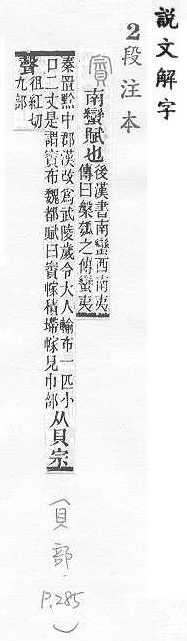 說文解字
2段注本
賨
南蠻賦也後漢書南蠻西南夷
傳曰槃瓠之傳蠻夷
秦置黔中郡漢改爲武陵歲令大人輸布一匹小
口二丈是謂賨布魏都賦曰賨幏積墆幏見巾部
从貝宗
聲徂紅切
九部
(貝部.P.285)